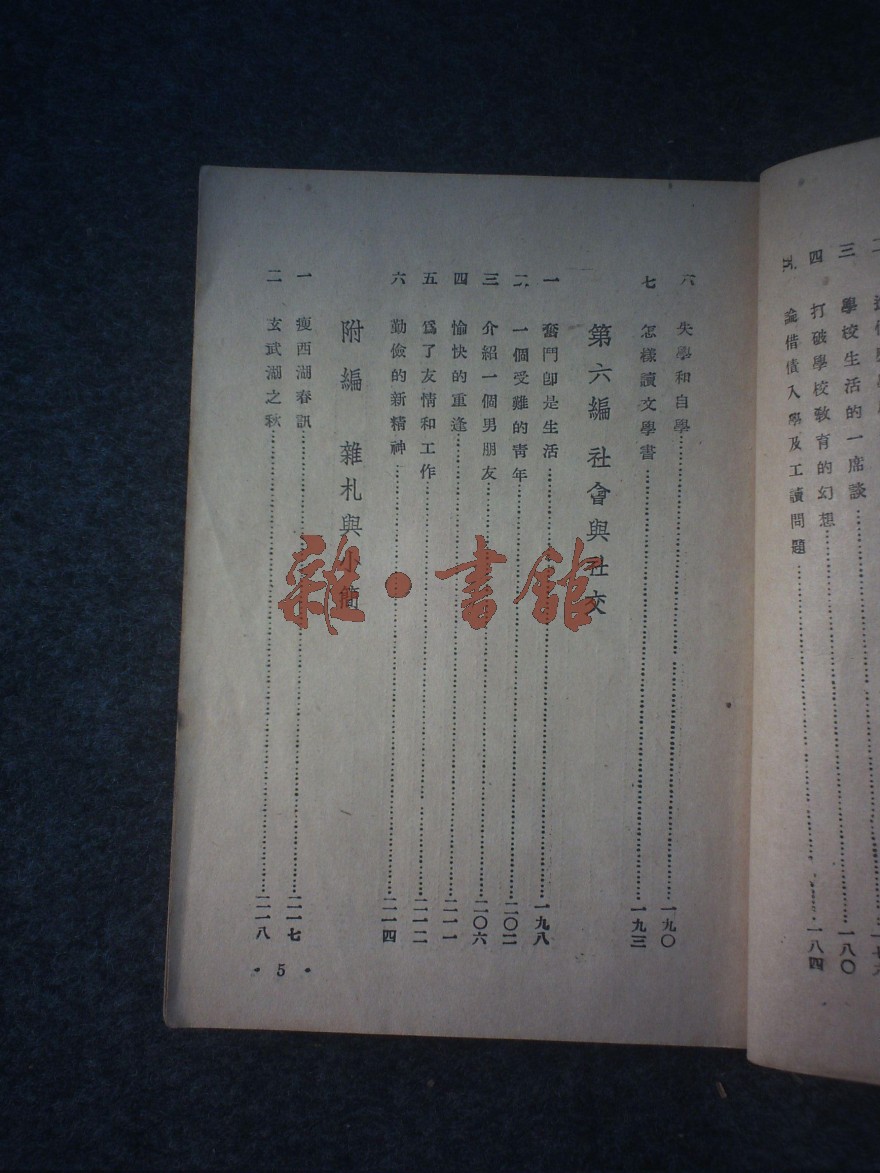 三 學校生活的一席談……一八〇
四 打破學校教育的幻想……一八四
五 論借債入學及工讀問題
六 失學和自學……一九〇
七 怎樣讀文學書……一九三
第六編 社會與社交
一 奮鬥卽是生活……一九八
二 一個受難的青年……二〇二
三 介紹一個男朋友……二〇六
四 愉快的重逢……二一一
五 爲了友情和工作……二一二
六 勤儉的新精神……二一四
附編 雜札與小簡
一 瘦西湖春訊……二一七
二 玄武湖之秋……二一八
• 5 •
雜•書館